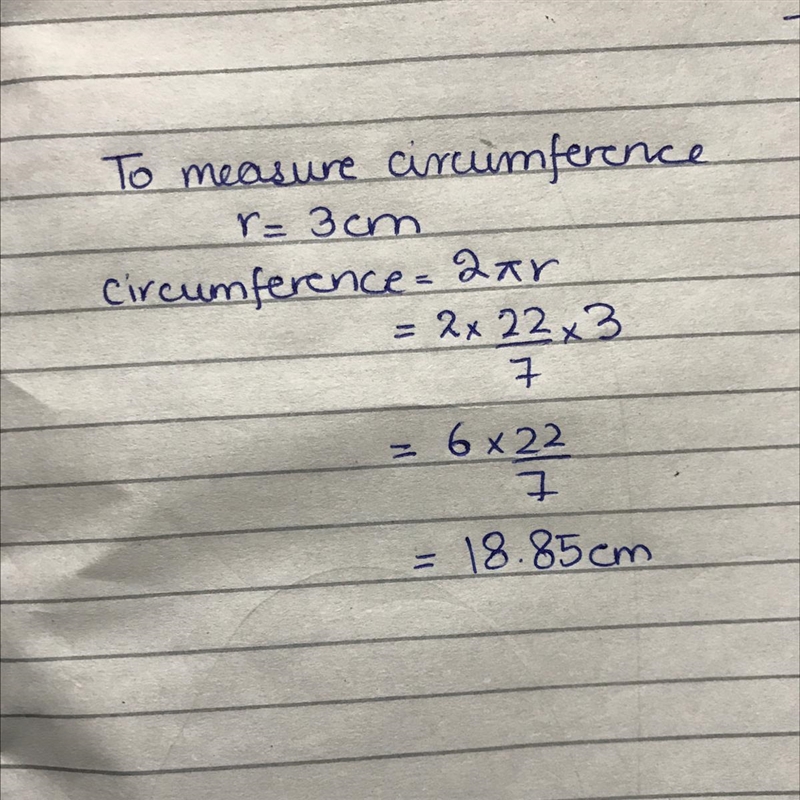 To measure circumference
r = 3cm
circumference = 2πr
= 2 × 22/7 × 3
= 6 × 22/7
= 18.85cm